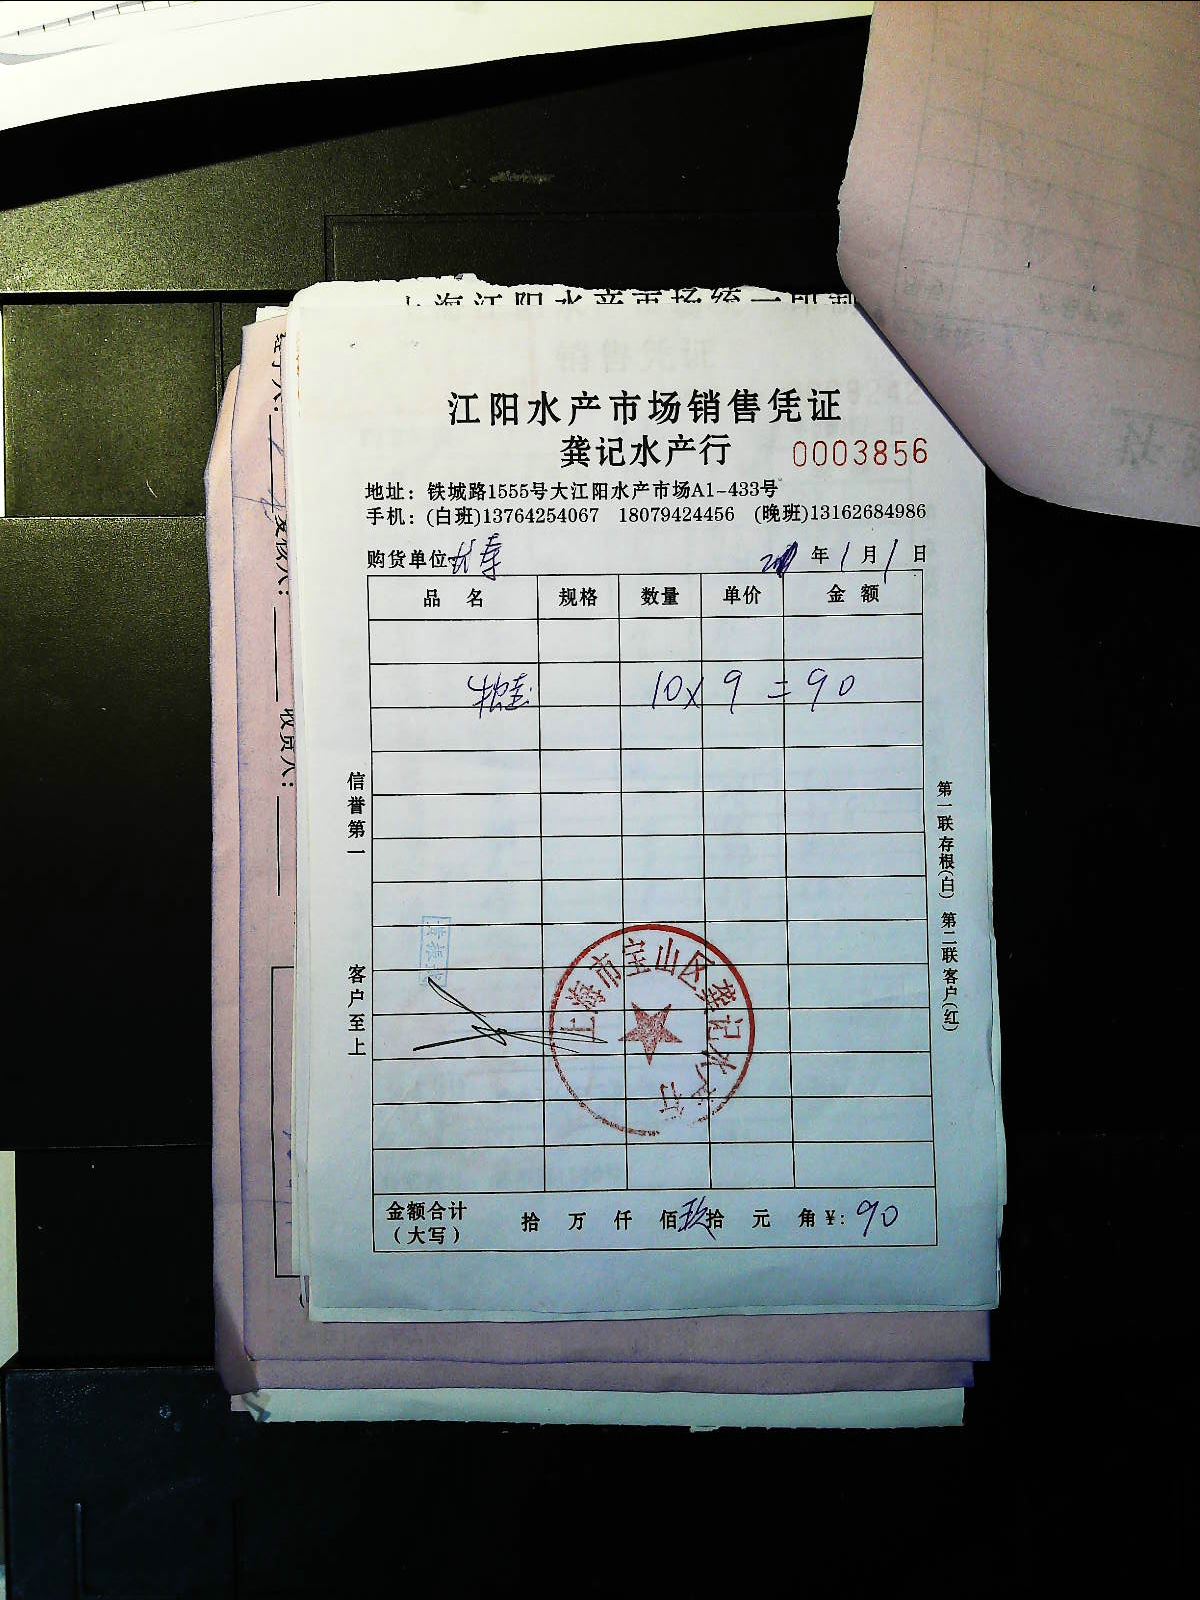 上海江阳水产市场统一印制
江阳水产市场销售凭证
龚记水产行 0003856
地址：铁城路1555号大江阳水产市场A1-433号
手机：(白班)13764254067 18079424456 (晚班)13162684986
购货单位 长寿 年 1 月 1 日
品 名 规格 数量 单价 金 额
10 x 9 = 90
信誉第一 客户至上
第一联存根(白) 第二联客户(红)
上海市宝山区龚记水产行
金额合计（大写） 拾 万 仟 佰 玖拾 元 角 ¥: 90
收货人：
收货人：